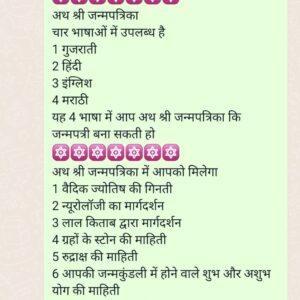 अथ श्री जन्मपत्रिका
चार भाषाओं में उपलब्ध है
1 गुजराती
2 हिंदी
3 इंग्लिश
4 मराठी
यह 4 भाषा में आप अथ श्री जन्मपत्रिका कि
जन्मपत्री बना सकती हो
🔯🔯🔯🔯🔯🔯🔯
अथ श्री जन्मपत्रिका में आपको मिलेगा
1 वैदिक ज्योतिष की गिनती
2 न्यूरोलॉजी का मार्गदर्शन
3 लाल किताब द्वारा मार्गदर्शन
4 ग्रहों के स्टोन की माहिती
5 रुद्राक्ष की माहिती
6 आपकी जन्मकुंडली में होने वाले शुभ और अशुभ
योग की माहिती